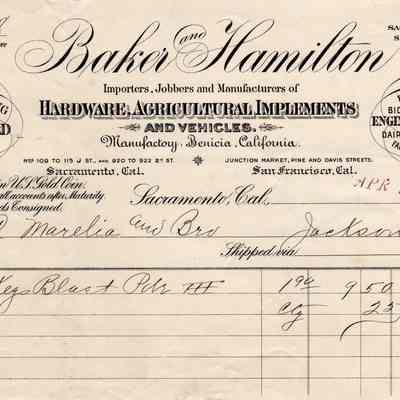 Baker and Hamilton
Importers, Jobbers and Manufacturers of
HARDWARE, AGRICULTURAL IMPLEMENTS
AND VEHICLES.
Manufactory, Benicia, California.
Nos 109 TO 115 J ST. AND 920 TO 922 2ND ST.
Sacramento, Cal.
JUNCTION MARKET, PINE AND DAVIS STREETS.
San Francisco, Cal.
in U.S. Gold Coin.
all accounts after Maturity.
Consigned.
Sacramento, Cal.
APR
Marelia and Bro
Jackson
Shipped via
Kegs Blast Pdr III 1 90 9 50
Ctg 25